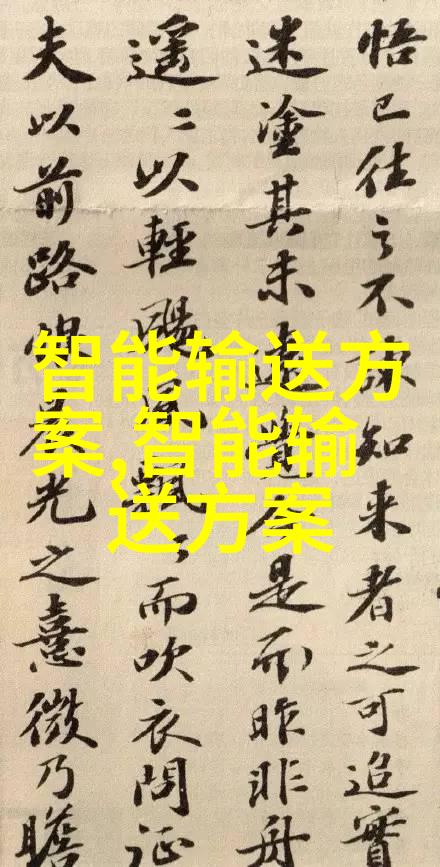 悟已往之不諫知来者之可追實
迷塗其未遠覺今是而昨非舟
遥〻以輕颺風飄〻而吹衣問征
夫以前路恨晨光之熹微乃瞻
智能输送方
案,智能输
送方案